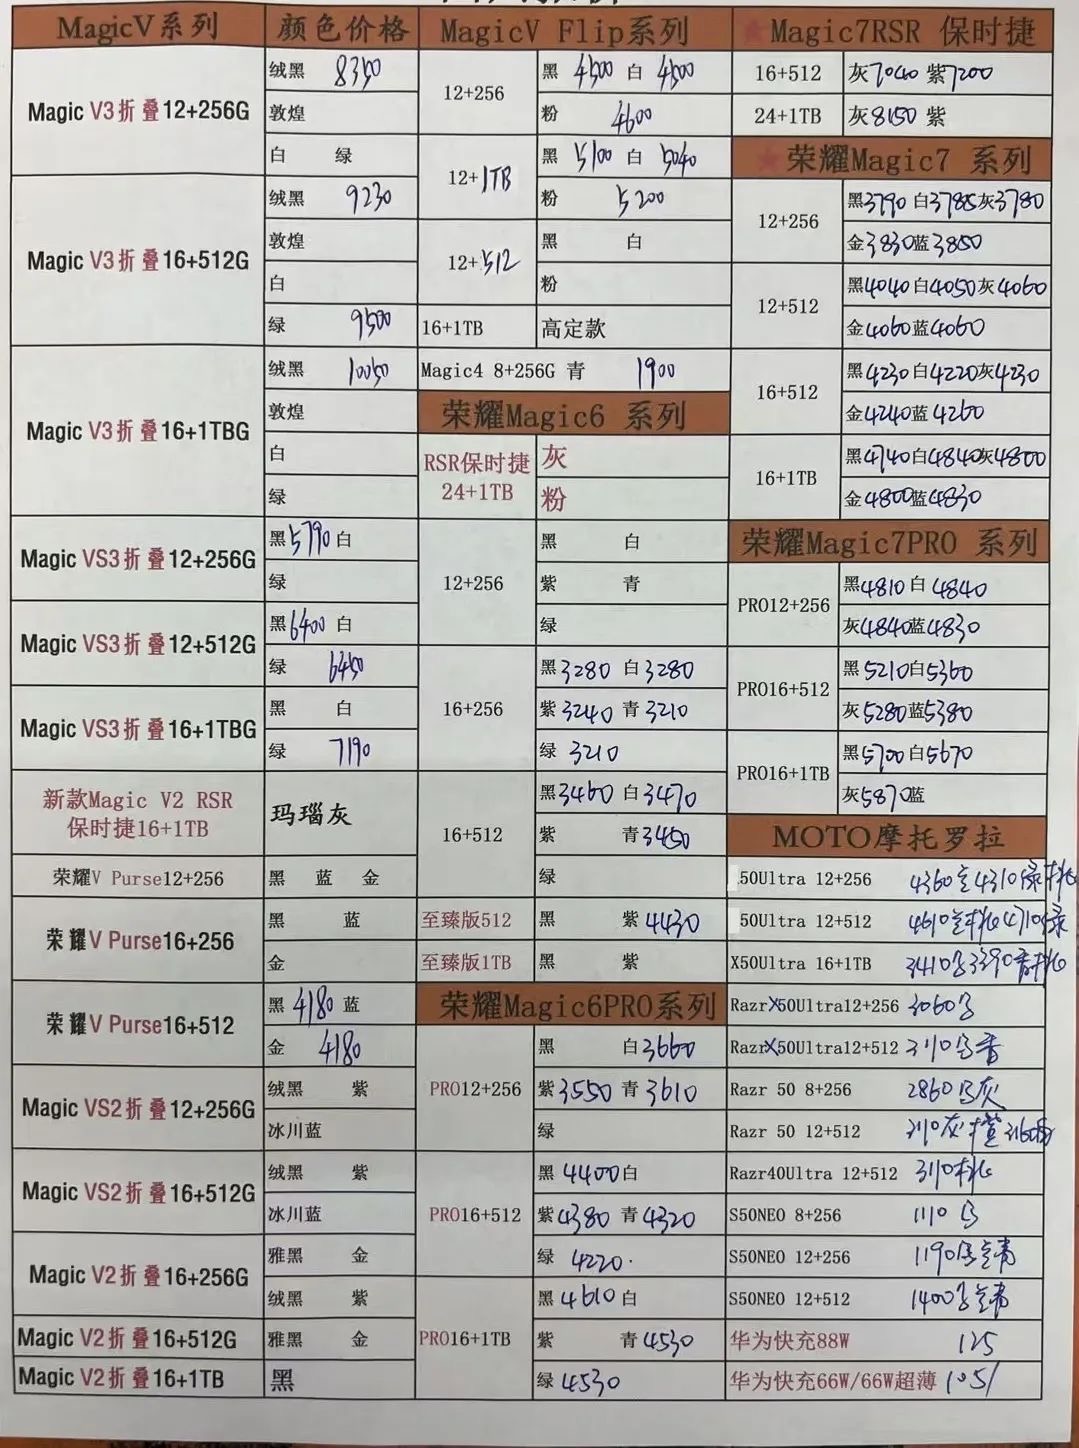 MagicV系列 颜色价格
Magic V3折叠12+256G
绒黑 8350
敦煌
白 绿
Magic V3折叠16+512G
绒黑 9230
敦煌
白
绿 9500
Magic V3折叠16+1TBG
绒黑 10050
敦煌
白
绿
Magic VS3折叠12+256G
黑5790白
绿
Magic VS3折叠12+512G
黑6400白
绿 6450
Magic VS3折叠16+1TBG
黑 白
绿 7190
新款Magic V2 RSR
保时捷16+1TB
玛瑙灰
荣耀V Purse12+256
黑 蓝 金
荣耀V Purse16+256
黑 蓝
金
荣耀V Purse16+512
黑4180蓝
金 4180
Magic VS2折叠12+256G
绒黑 紫
冰川蓝
Magic VS2折叠16+512G
绒黑 紫
冰川蓝
Magic V2折叠16+256G
雅黑 金
绒黑 紫
Magic V2折叠16+512G
雅黑 金
Magic V2折叠16+1TB
黑
MagicV Flip系列
12+256
黑 4500 白 4500
粉 4600
12+1TB
黑 5100 白 5040
粉 5200
12+512
黑 白
粉
16+1TB 高定款
Magic4 8+256G 青 1900
荣耀Magic6 系列
RSR保时捷
24+1TB
灰
粉
12+256
黑 白
紫 青
绿
16+256
黑3280 白3280
紫3240 青3210
绿 3210
16+512
黑3460 白3470
紫 青3450
绿
至臻版512 黑 紫4430
至臻版1TB 黑 紫
荣耀Magic6PRO系列
PRO12+256
黑 白3660
紫3550 青3610
绿
PRO16+512
黑 4400白
紫4380 青4320
绿 4220.
PRO16+1TB
黑4610白
紫 青4530
绿4530
★Magic7RSR 保时捷
16+512 灰7040 紫7200
24+1TB 灰8150 紫
★荣耀Magic7 系列
12+256
黑3790白3785灰3780
金3830蓝3850
12+512
黑4040白4050灰4060
金4060蓝4060
16+512
黑4230白4220灰4230
金4240蓝4260
16+1TB
黑4740白4840灰4800
金4800蓝4830
荣耀Magic7PRO 系列
PRO12+256
黑4810白4840
灰4840蓝4830
PRO16+512
黑5210白5360
灰5280蓝5380
PRO16+1TB
黑5700白5670
灰5870蓝
MOTO摩托罗拉
50Ultra 12+256 4360 4310绿
50Ultra 12+512 4610 4710绿
X50Ultra 16+1TB 3410 3390
RazrX50Ultra12+256 3060
RazrX50Ultra12+512 3110
Razr 50 8+256 2860 灰
Razr 50 12+512 3110灰
Razr40Ultra 12+512 3110
S50NEO 8+256 1110
S50NEO 12+256 1190
S50NEO 12+512 1400
华为快充88W 125
华为快充66W/66W超薄 105/